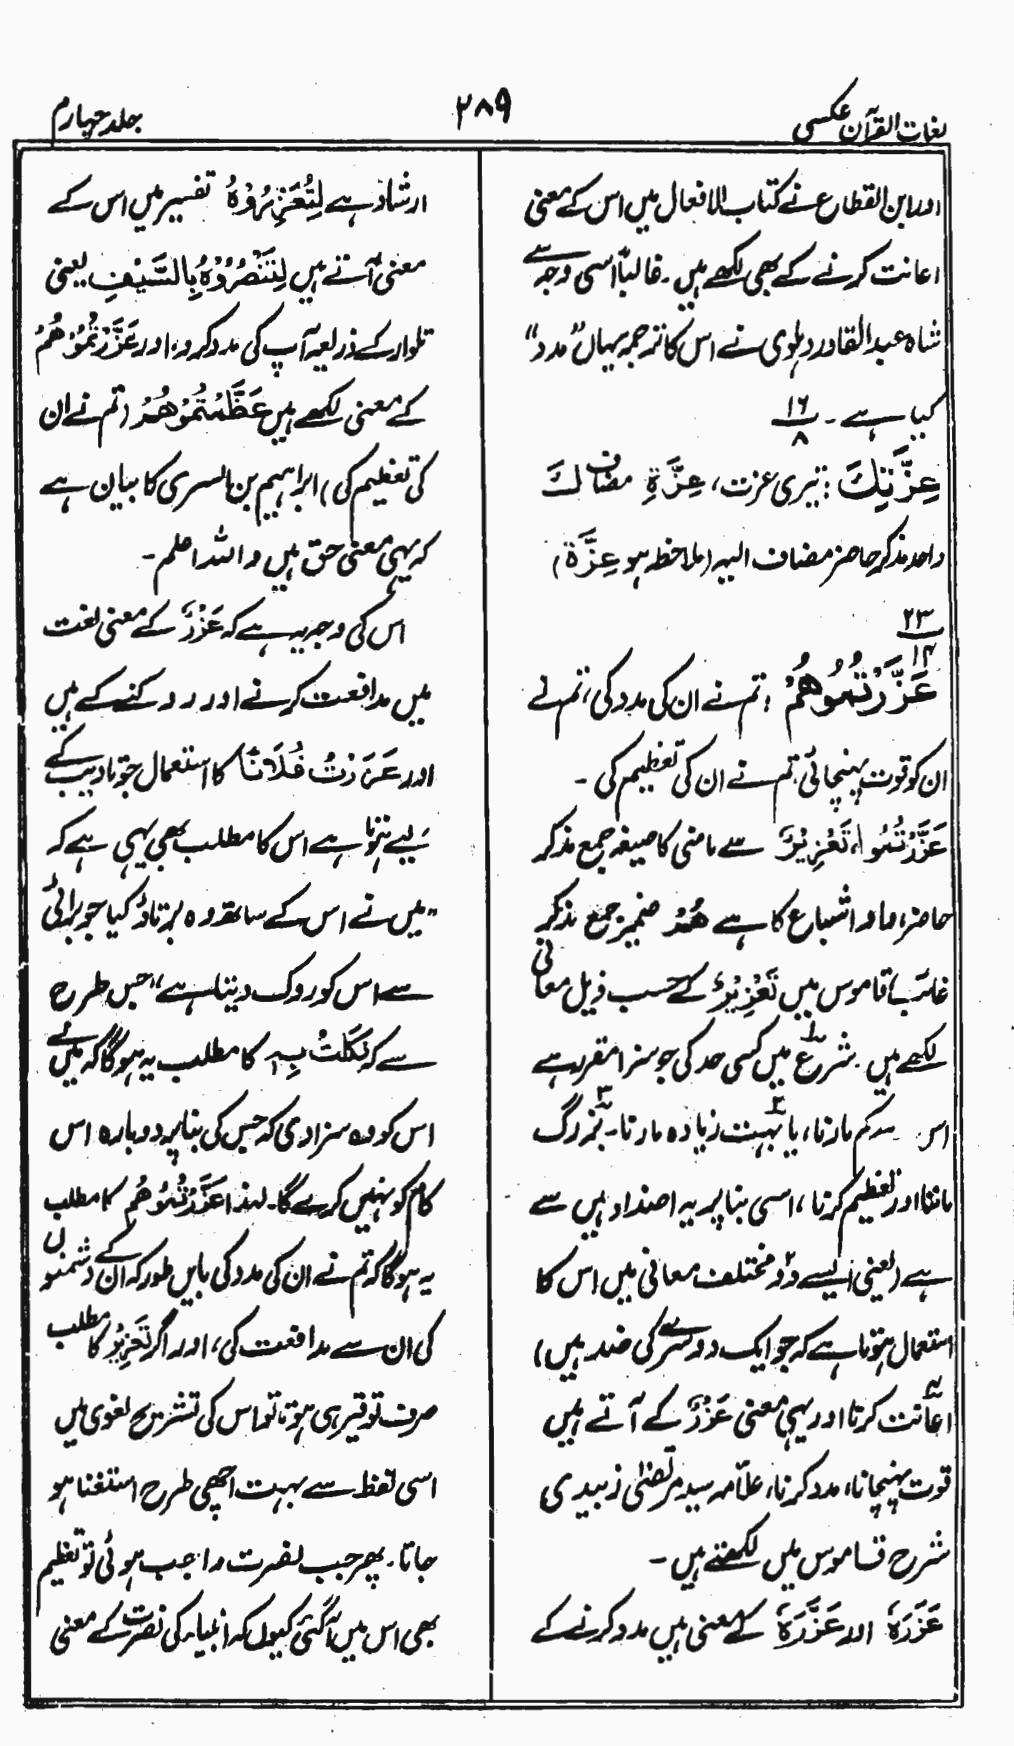 لغات القرآن عکسی
۲۸۹
جلد چہارم
اور ابن القطاع نے کتاب الافعال میں اس کے معنی
اعانت کرنے کے بھی لکھے ہیں۔ غالباً اسی وجہ سے
شاہ عبدالقادر دہلوی نے اس کا ترجمہ یہاں "مدد"
کیا ہے۔ ۱۶/۸
عِزَّتِكَ : تیری عزت، عِزَّةِ مضاف كَ
واحد مذکر حاضر مضاف الیہ (ملاحظہ ہو عِزَّة)
۲۳/۱۴
عَزَّرْتُمُوهُمْ : تم نے ان کی مدد کی، تم نے
ان کو قوت پہنچائی، تم نے ان کی تعظیم کی۔
عَزَّرْتُمُوا، تَعْزِیْرٌ سے ماضی کا صیغہ جمع مذکر
حاضر، ما و اشباع کا ہے هُمْ ضمیر جمع مذکر
غائب، قاموس میں تَعْزِیْرٌ کے حسب ذیل معانی
لکھے ہیں۔ ۱ شرع میں کسی حد کی جو سزا مقرر ہے
اس سے کم مارنا، یا ۲ بہت زیادہ مارنا۔ ۳ بزرگ
ماننا اور تعظیم کرنا، اسی بنا پر یہ اضداد میں سے
ہے (یعنی ایسے دو مختلف معانی میں اس کا
استعمال ہوتا ہے کہ جو ایک دوسرے کی ضد ہیں)
۴ اعانت کرنا اور یہی معنی عَزْرٌ کے آتے ہیں
قوت پہنچانا، مدد کرنا، علامہ سید مرتضیٰ زبیدی
شرح قاموس میں لکھتے ہیں۔
عَزَرَهٗ اور عَزَّرَهٗ کے معنی ہیں مدد کرنے کے
ارشاد ہے لِتُعَزِّرُوْهُ تفسیر میں اس کے
معنی آتے ہیں لِتَنْصُرُوْهُ بِالسَّیْفِ یعنی
تلوار کے ذریعہ آپ کی مدد کرو، اور عَزَّرْتُمُوْهُمْ
کے معنی لکھے ہیں عَظَّمْتُمُوْهُمْ (تم نے ان
کی تعظیم کی) ابراہیم بن السری کا بیان ہے
کہ یہی معنی حق ہیں واللہ اعلم۔
اس کی وجہ یہ ہے کہ عَزْرٌ کے معنی لغت
میں مدافعت کرنے اور روکنے کے ہیں
اور عَزَرْتُ فُلَانًا کا استعمال جو تادیب کے
لیے ہوتا ہے اس کا مطلب بھی یہی ہے کہ
"میں نے اس کے ساتھ وہ برتاؤ کیا جو برائی
سے اس کو روک دیتا ہے" جس طرح
سے کہ نَکَلْتُ بِہٖ کا مطلب یہ ہوگا کہ میں نے
اس کو وہ سزا دی کہ جس کی بنا پر دوبارہ اس
کام کو نہیں کرے گا۔ لہذا عَزَّرْتُمُوْهُمْ کا مطلب
یہ ہوگا کہ تم نے ان کی مدد کی بایں طور کہ ان کے دشمنوں
کی ان سے مدافعت کی، اور اگر تَعْزِیْر کا مطلب
صرف توقیر ہی ہوتا تو اس کی تشریح لغوی میں
اسی لفظ سے بہت اچھی طرح استغنا ہو
جاتا۔ پھر جب نصرت واجب ہوئی تو تعظیم
بھی اس میں آگئی کیوں کہ انبیاء کی نصرت کے معنی